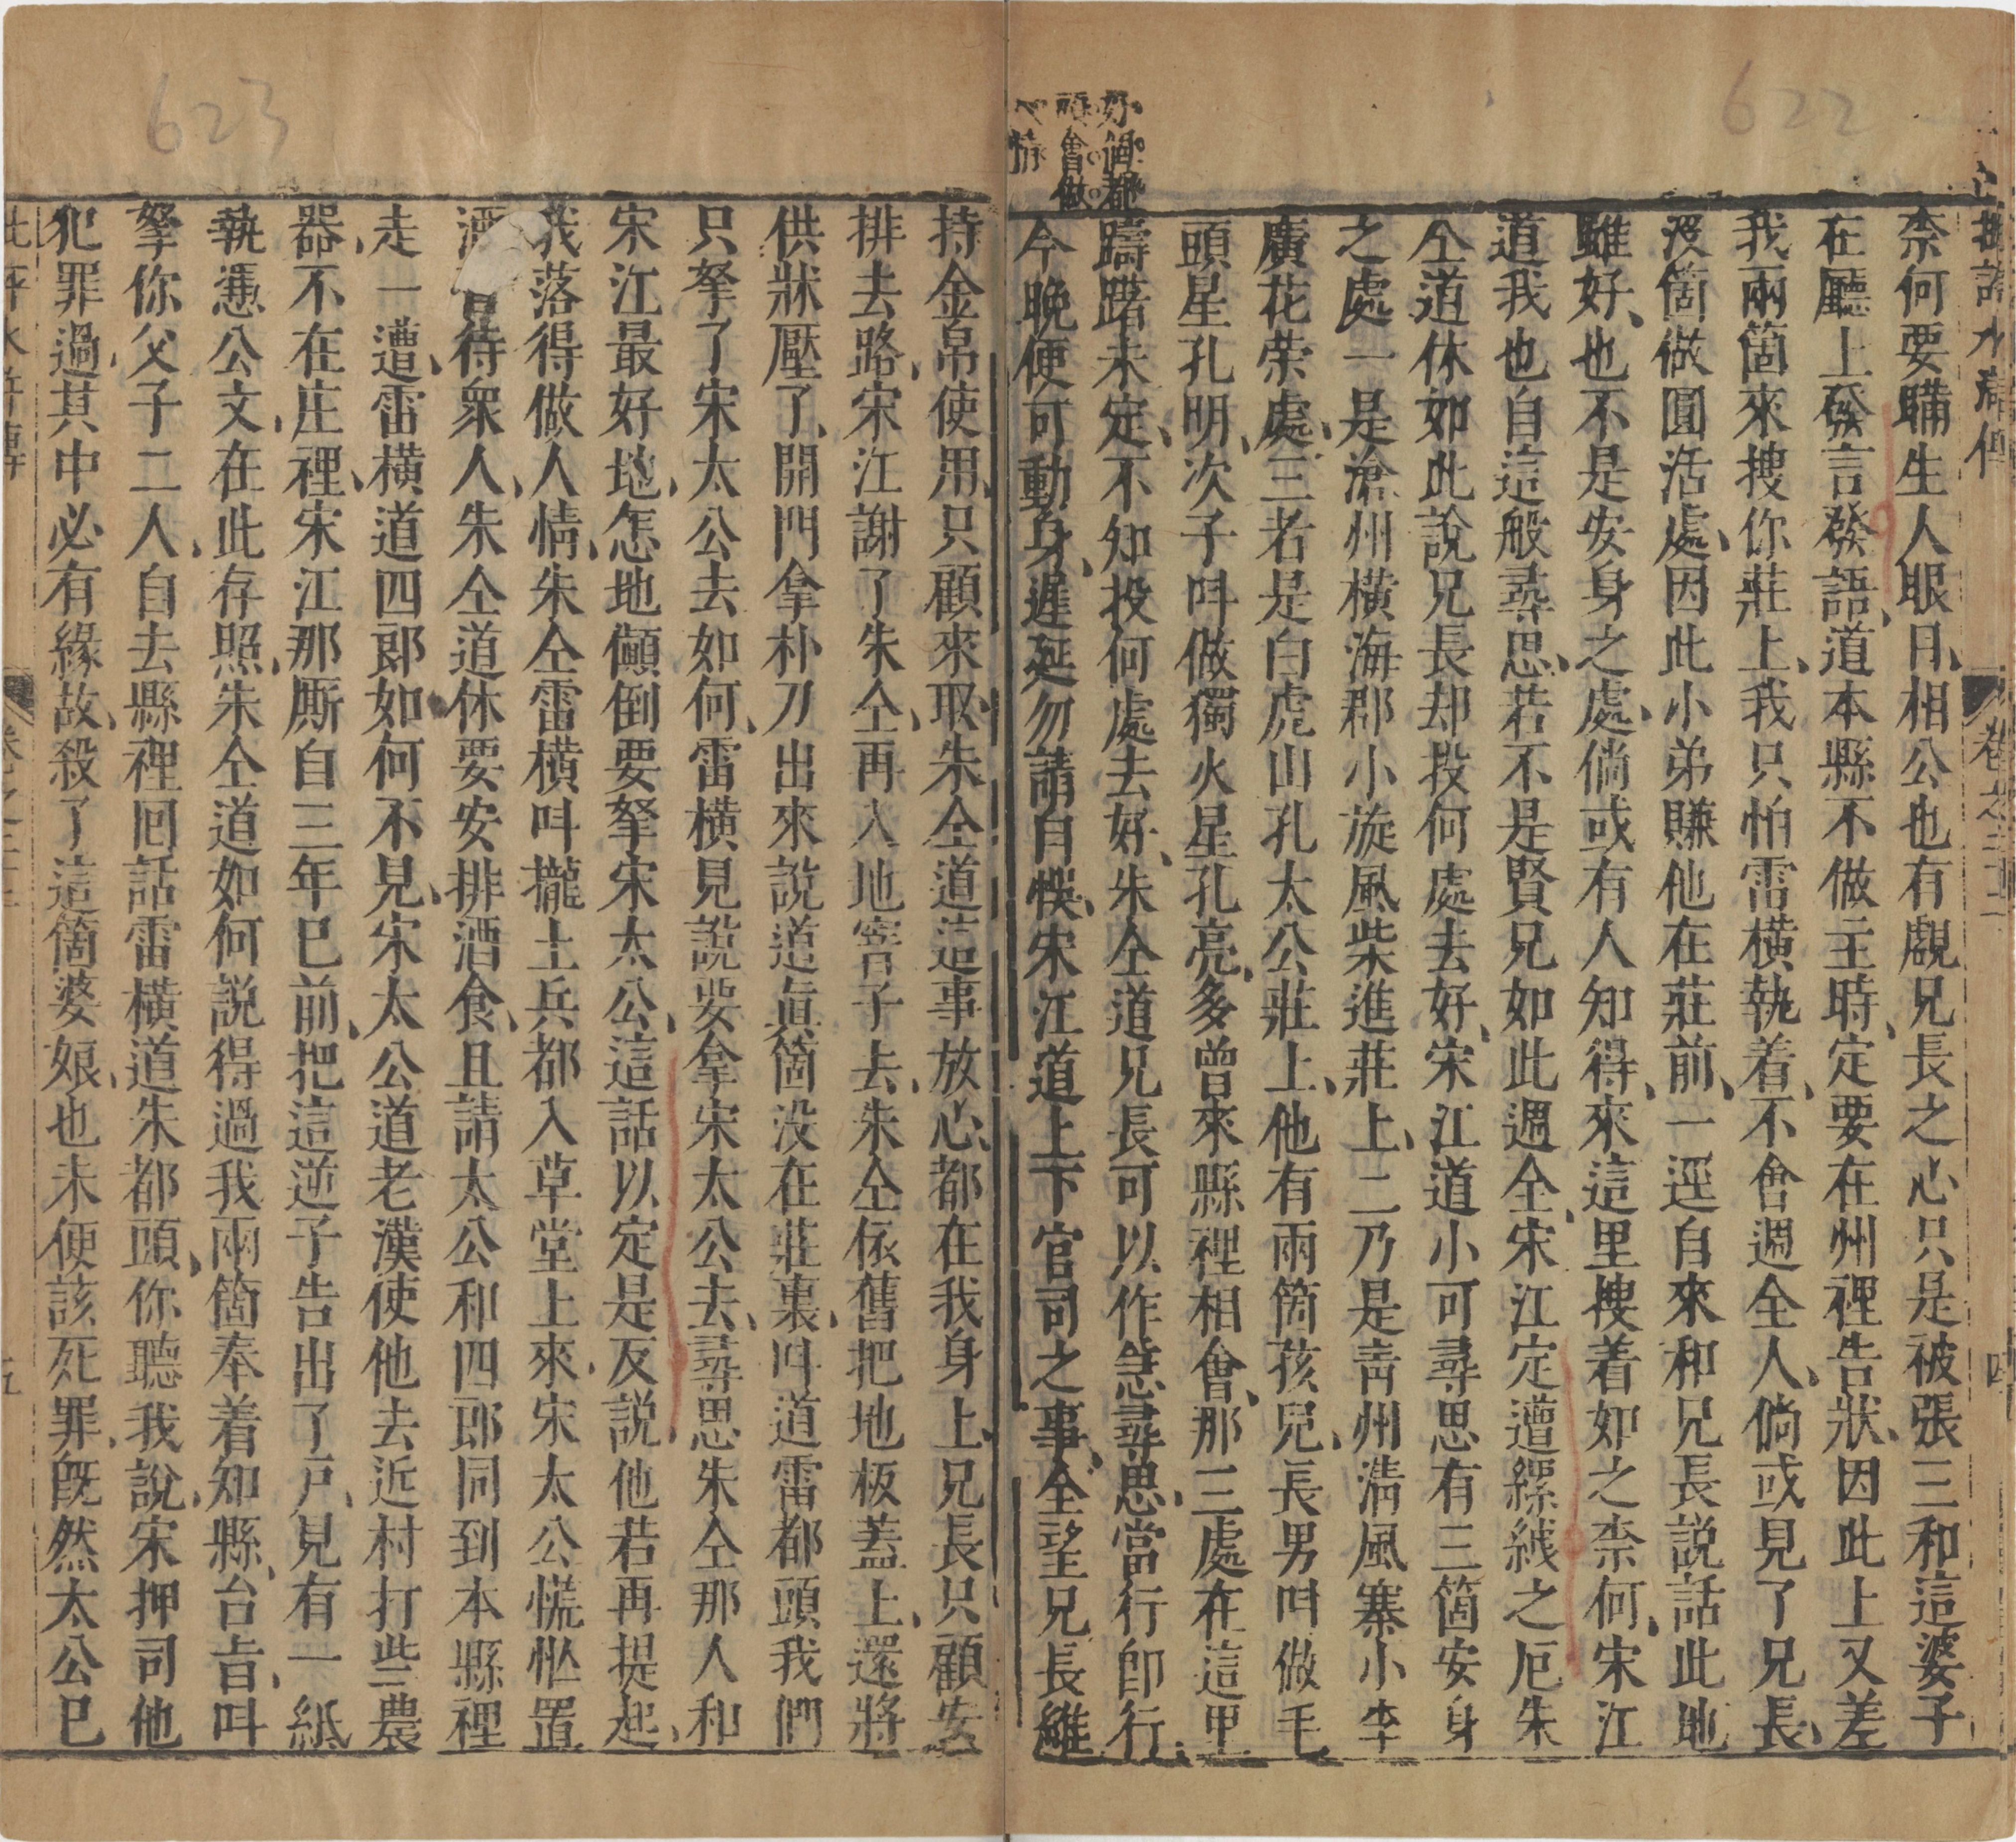 622
好個都
頭會做
人情
批評水滸傳
卷之二十二
四
柰何要瞞生人眼目相公也有覷兄長之心只是被張三和這婆子
在廳上發言發語道本縣不做主時定要在州裡告狀因此上又差
我兩箇來搜你莊上我只怕雷橫執着不會週全人倘或見了兄長
沒箇做圓活處因此小弟賺他在莊前一逕自來和兄長說話此地
雖好也不是安身之處倘或有人知得來這里搜着如之柰何宋江
道我也自這般尋思若不是賢兄如此週全宋江定遭縲絏之厄朱
仝道休如此說兄長却投何處去好宋江道小可尋思有三箇安身
之處一是滄州橫海郡小旋風柴進莊上二乃是青州清風寨小李
廣花荣處三者是白虎山孔太公莊上他有兩箇孩兒長男呌做毛
頭星孔明次子呌做獨火星孔亮多曾來縣裡相會那三處在這里
躊躇未定不知投何處去好朱仝道兄長可以作急尋思當行即行
今晚便可動身遲延勿請自悞宋江道上下官司之事全望兄長維
623
持金帛使用只顧來取朱仝道這事放心都在我身上兄長只顧安
排去路宋江謝了朱仝再入地窨子去朱仝依舊把地板蓋上還將
供牀壓了開門拿朴刀出來說道眞箇没在莊裏呌道雷都頭我們
只拏了宋太公去如何雷橫見說要拿宋太公去尋思朱仝那人和
宋江最好地怎地顚倒要拏宋太公這話以定是反説他若再提起
我落得做人情朱仝雷横呌攏土兵都入草堂上來宋太公慌忙置
酒待衆人朱仝道休要安排酒食且請太公和四郎同到本縣裡
走一遭雷横道四郎如何不見宋太公道老漢使他去近村打些農
器不在庄裡宋江那厮自三年巳前把這逆子告出了戸見有一紙
執憑公文在此存照朱仝道如何説得過我兩箇奉着知縣台㫖呌
拏你父子二人自去縣裡囘話雷橫道朱都頭你聽我說宋押司他
犯罪過其中必有緣故殺了這箇婆娘也未便該死罪旣然太公巳
批評水滸傳
五